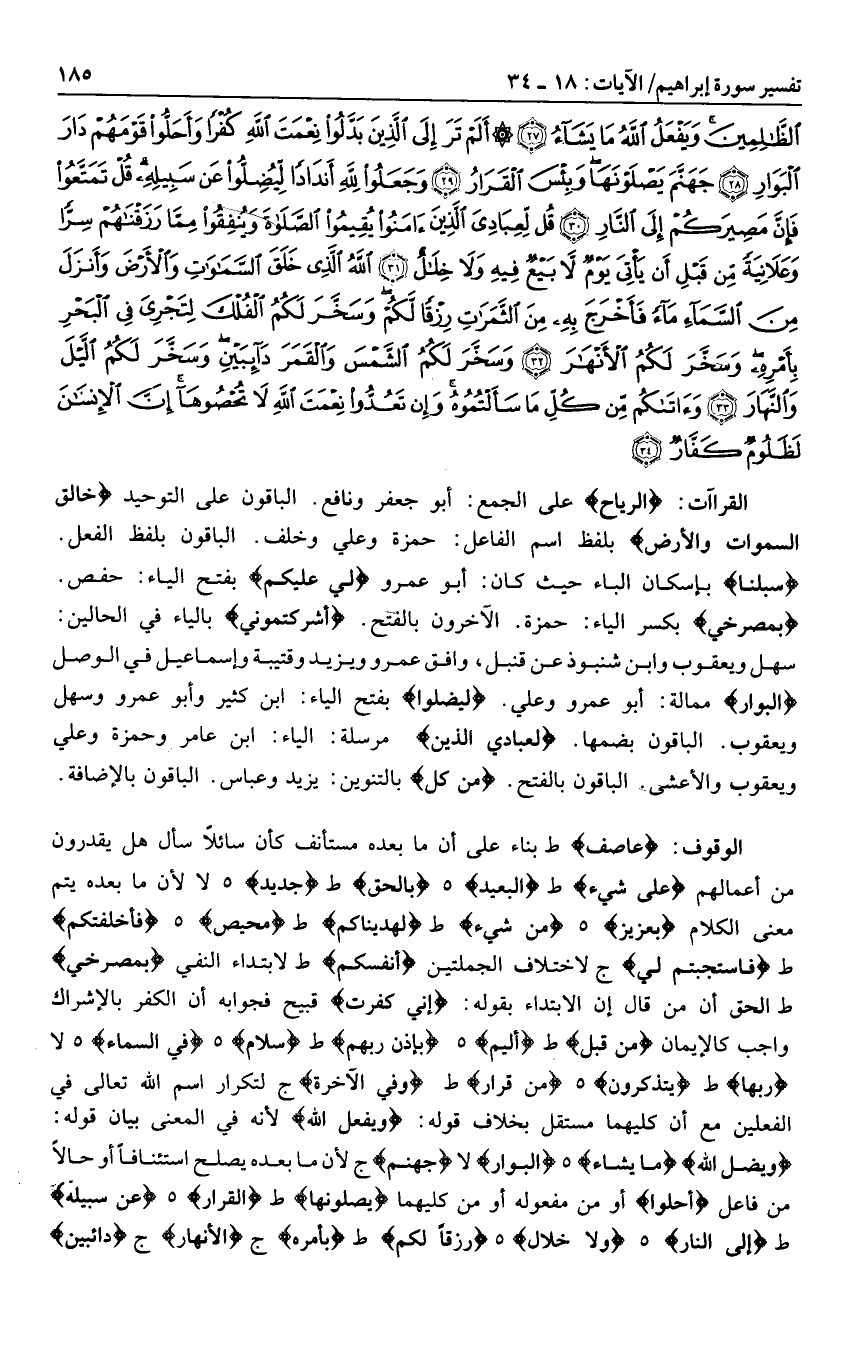 تفسير سورة إبراهيم/ الآيات: ١٨ - ٣٤
١٨٥
ٱلظَّٰلِمِينَۚ وَيَفْعَلُ ٱللَّهُ مَا يَشَآءُ ﴿٢٧﴾ ۞ أَلَمْ تَرَ إِلَى ٱلَّذِينَ بَدَّلُوا۟ نِعْمَتَ ٱللَّهِ كُفْرًا وَأَحَلُّوا۟ قَوْمَهُمْ دَارَ
ٱلْبَوَارِ ﴿٢٨﴾ جَهَنَّمَ يَصْلَوْنَهَاۖ وَبِئْسَ ٱلْقَرَارُ ﴿٢٩﴾ وَجَعَلُوا۟ لِلَّهِ أَندَادًا لِّيُضِلُّوا۟ عَن سَبِيلِهِۦۗ قُلْ تَمَتَّعُوا۟
فَإِنَّ مَصِيرَكُمْ إِلَى ٱلنَّارِ ﴿٣٠﴾ قُل لِّعِبَادِىَ ٱلَّذِينَ ءَامَنُوا۟ يُقِيمُوا۟ ٱلصَّلَوٰةَ وَيُنفِقُوا۟ مِمَّا رَزَقْنَٰهُمْ سِرًّا
وَعَلَانِيَةً مِّن قَبْلِ أَن يَأْتِىَ يَوْمٌ لَّا بَيْعٌ فِيهِ وَلَا خِلَٰلٌ ﴿٣١﴾ ٱللَّهُ ٱلَّذِى خَلَقَ ٱلسَّمَٰوَٰتِ وَٱلْأَرْضَ وَأَنزَلَ
مِنَ ٱلسَّمَآءِ مَآءً فَأَخْرَجَ بِهِۦ مِنَ ٱلثَّمَرَٰتِ رِزْقًا لَّكُمْۖ وَسَخَّرَ لَكُمُ ٱلْفُلْكَ لِتَجْرِىَ فِى ٱلْبَحْرِ
بِأَمْرِهِۦۖ وَسَخَّرَ لَكُمُ ٱلْأَنْهَٰرَ ﴿٣٢﴾ وَسَخَّرَ لَكُمُ ٱلشَّمْسَ وَٱلْقَمَرَ دَآئِبَيْنِۖ وَسَخَّرَ لَكُمُ ٱلَّيْلَ
وَٱلنَّهَارَ ﴿٣٣﴾ وَءَاتَىٰكُم مِّن كُلِّ مَا سَأَلْتُمُوهُۚ وَإِن تَعُدُّوا۟ نِعْمَتَ ٱللَّهِ لَا تُحْصُوهَآۗ إِنَّ ٱلْإِنسَٰنَ
لَظَلُومٌ كَفَّارٌ ﴿٣٤﴾
القراآت: ﴿الرياح﴾ على الجمع: أبو جعفر ونافع. الباقون على التوحيد ﴿خالق
السموات والأرض﴾ بلفظ اسم الفاعل: حمزة وعلي وخلف. الباقون بلفظ الفعل.
﴿سبلنا﴾ بإسكان الباء حيث كان: أبو عمرو ﴿لي عليكم﴾ بفتح الياء: حفص.
﴿بمصرخي﴾ بكسر الياء: حمزة. الآخرون بالفتح. ﴿أشركتموني﴾ بالياء في الحالين:
سهل ويعقوب وابن شنبوذ عن قنبل، وافق عمرو ويزيد وقتيبة وإسماعيل في الوصل
﴿البوار﴾ ممالة: أبو عمرو وعلي. ﴿ليضلوا﴾ بفتح الياء: ابن كثير وأبو عمرو وسهل
ويعقوب. الباقون بضمها. ﴿لعبادي الذين﴾ مرسلة: الياء: ابن عامر وحمزة وعلي
ويعقوب والأعشى. الباقون بالفتح. ﴿من كل﴾ بالتنوين: يزيد وعباس. الباقون بالإضافة.
الوقوف: ﴿عاصف﴾ ط بناء على أن ما بعده مستأنف كأن سائلاً سأل هل يقدرون
من أعمالهم ﴿على شيء﴾ ط ﴿البعيد﴾ ٥ ﴿بالحق﴾ ط ﴿جديد﴾ ٥ لا لأن ما بعده يتم
معنى الكلام ﴿بعزيز﴾ ٥ ﴿من شيء﴾ ط ﴿لهديناكم﴾ ط ﴿محيص﴾ ٥ ﴿فأخلفتكم﴾
ط ﴿فاستجبتم لي﴾ ج لاختلاف الجملتين ﴿أنفسكم﴾ ط لابتداء النفي ﴿بمصرخي﴾
ط الحق أن من قال إن الابتداء بقوله: ﴿إني كفرت﴾ قبيح فجوابه أن الكفر بالإشراك
واجب كالإيمان ﴿من قبل﴾ ط ﴿أليم﴾ ٥ ﴿بإذن ربهم﴾ ط ﴿سلام﴾ ٥ ﴿في السماء﴾ ٥ لا
﴿ربها﴾ ط ﴿يتذكرون﴾ ٥ ﴿من قرار﴾ ط ﴿وفي الآخرة﴾ ج لتكرار اسم الله تعالى في
الفعلين مع أن كليهما مستقل بخلاف قوله: ﴿ويفعل الله﴾ لأنه في المعنى بيان قوله:
﴿ويضل الله﴾ ﴿ما يشاء﴾ ٥ ﴿البوار﴾ لا ﴿جهنم﴾ ج لأن ما بعده يصلح استئنافاً أو حالاً
من فاعل ﴿أحلوا﴾ أو من مفعوله أو من كليهما ﴿يصلونها﴾ ط ﴿القرار﴾ ٥ ﴿عن سبيله﴾
ط ﴿إلى النار﴾ ٥ ﴿ولا خلال﴾ ٥ ﴿رزقاً لكم﴾ ط ﴿بأمره﴾ ج ﴿الأنهار﴾ ج ﴿دائبين﴾